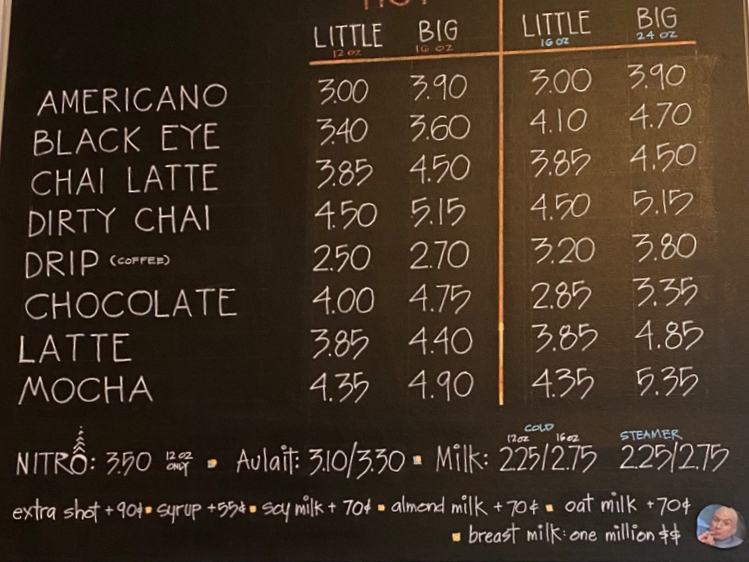 HOT
LITTLE BIG LITTLE BIG
12 OZ 16 OZ 16 OZ 24 OZ
AMERICANO 3.00 3.90 3.00 3.90
BLACK EYE 3.40 3.60 4.10 4.70
CHAI LATTE 3.85 4.50 3.85 4.50
DIRTY CHAI 4.50 5.15 4.50 5.15
DRIP (COFFEE) 2.50 2.70 3.20 3.80
CHOCOLATE 4.00 4.75 2.85 3.35
LATTE 3.85 4.40 3.85 4.85
MOCHA 4.35 4.90 4.35 5.35
COLD STEAMER
12oz 16oz
NITRO: 3.50 12 OZ ONLY ▪ Aulait: 3.10/3.30 ▪ Milk: 2.25/2.75 2.25/2.75
extra shot +90¢ ▪ syrup +55¢ ▪ soy milk + 70¢ ▪ almond milk +70¢ ▪ oat milk +70¢
▪ breast milk: one million $$